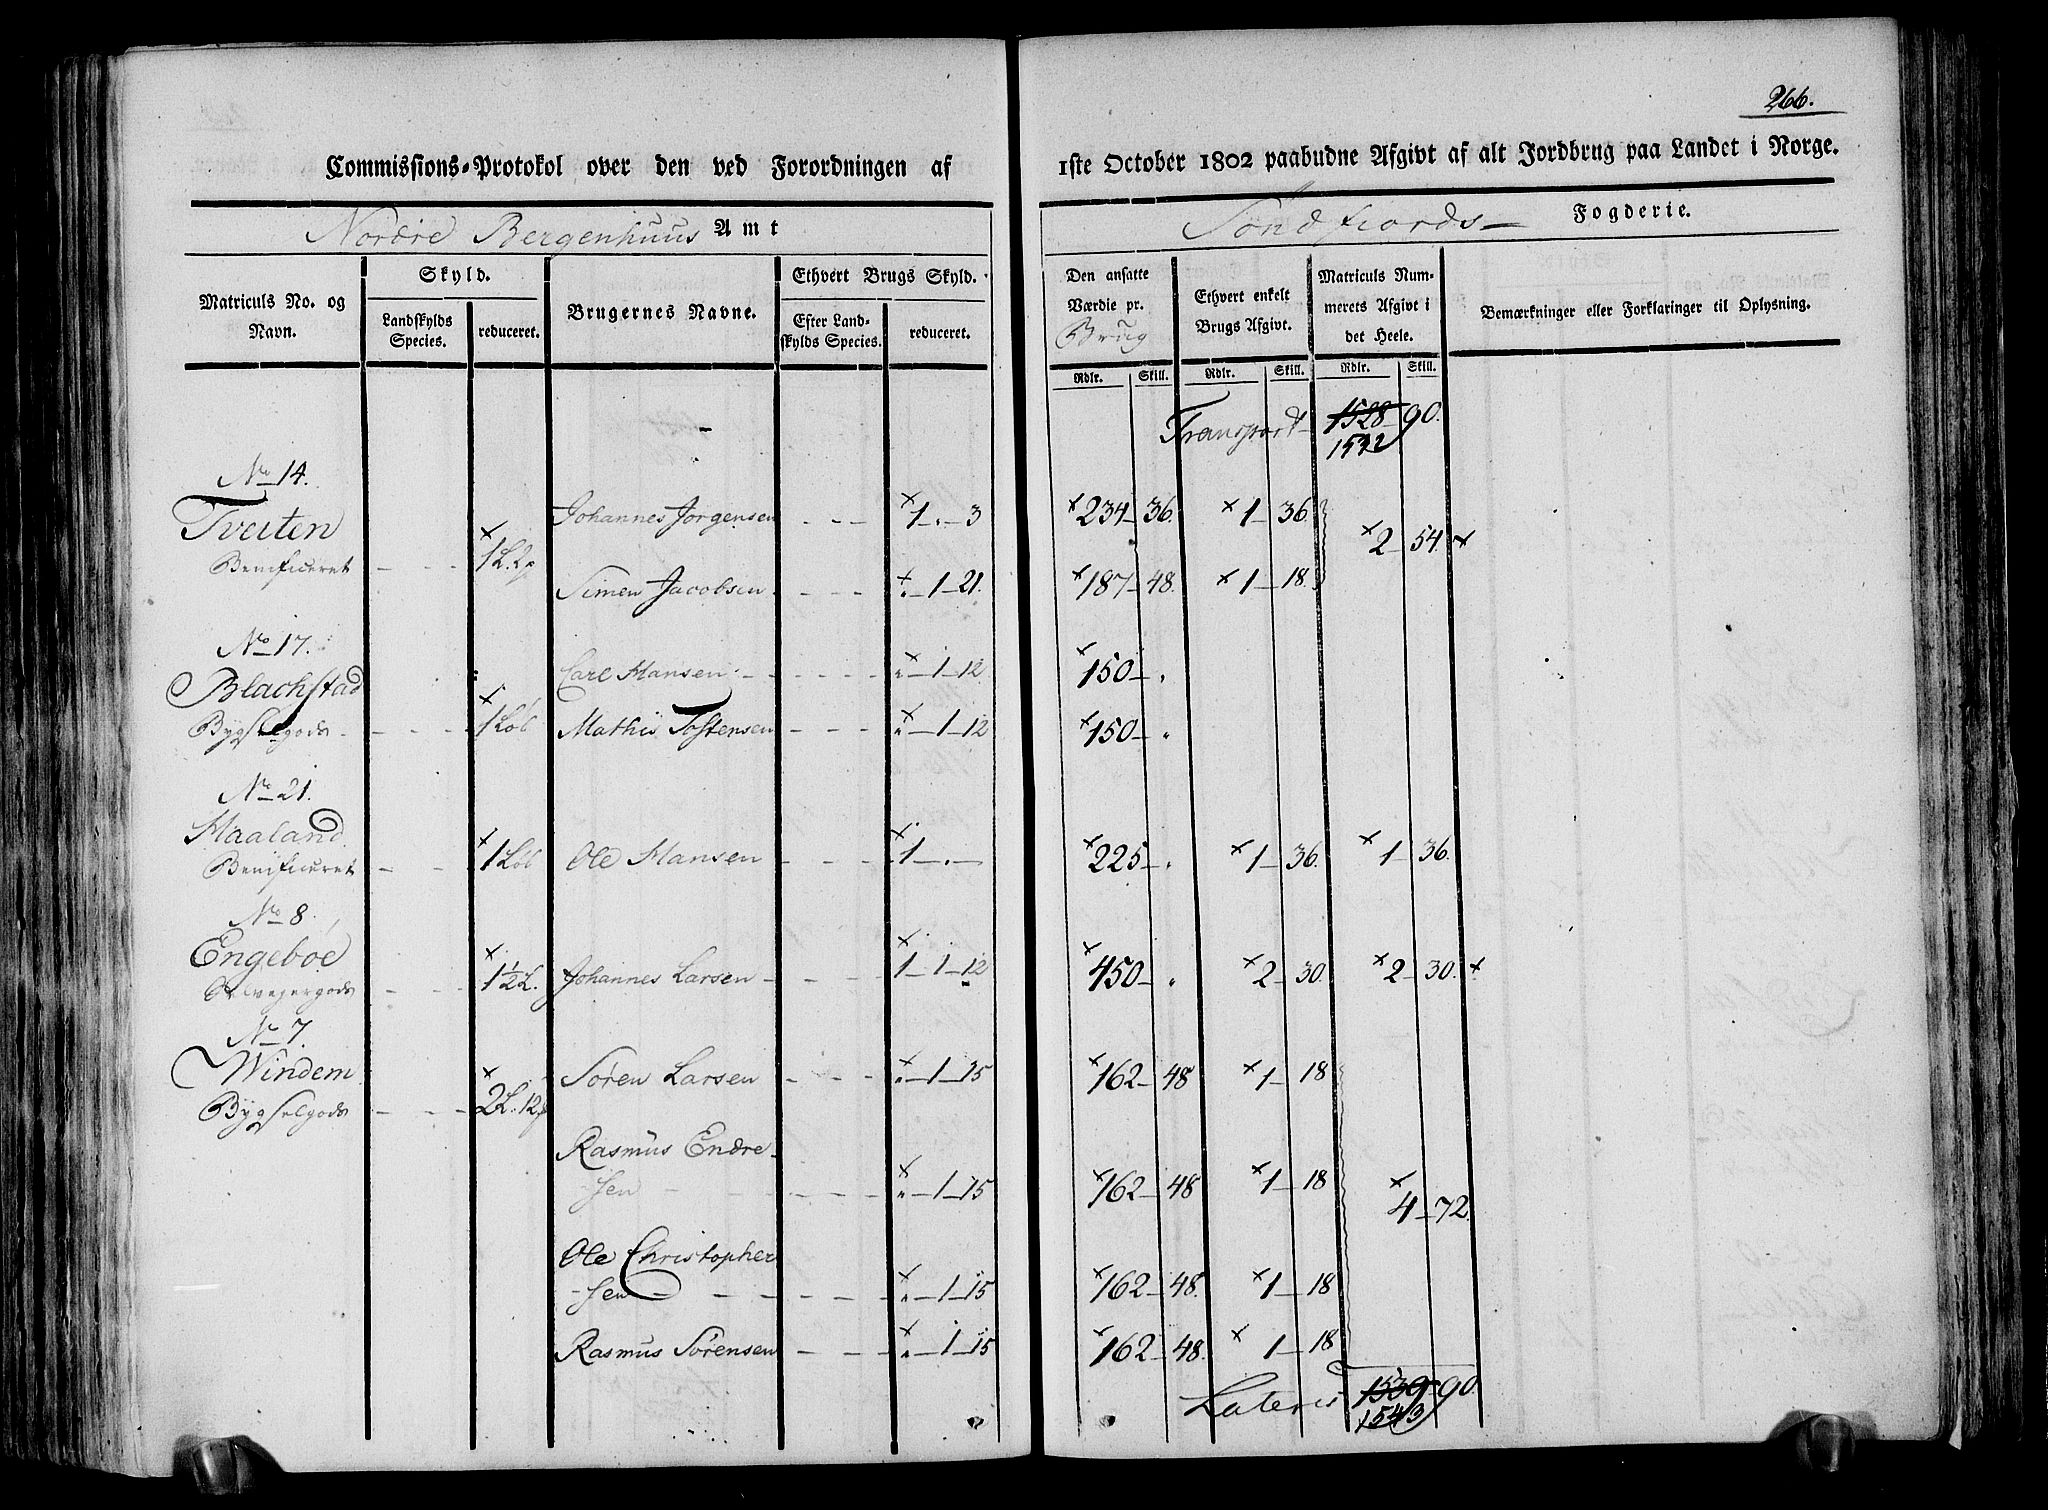 266.
Commissions-Protokol over den ved Forordningen af 1ste October 1802 paabudne Afgivt af alt Jordbrug paa Landet i Norge.
Nordre Bergenhuus Amt
Söndfiords Fogderie.
Matriculs No. og Navn.
Skyld.
Landskylds Species.
reduceret.
Brugernes Navne.
Ethvert Brugs Skyld.
Efter Landskylds Species.
reduceret.
Den ansatte Værdie pr. Brug
Ethvert enkelt Brugs Afgivt.
Matriculs Nummerets Afgivt i det Heele.
Bemærkninger eller Forklaringer til Oplysning.
Rdlr. Skill. Rdlr. Skill. Rdlr. Skill.
Transport 1528 90.
1532
No 14.
Tveiten Johannes Jörgensen - - - × 1 - . - 3 × 234 - 36. × 1 - 36.
Benificeret - - - × 1 L. 2 p × 2 - 54. ×
Simen Jacobsen - - - × " - 1 - 21. × 187 - 48. × 1 - 18.
No 17.
Blachstad Carl Hansen - - - × " - 1 - 12 × 150 - "
Bygselgods - - - × 1 Løb Mathis Tostensen - - - × " - 1 - 12 × 150 - "
No 21.
Haaland
Benificeret - - - × 1 Løb Ole Hansen - - - × 1 - . - × 225 - " × 1 - 36. × 1 - 36.
No 8.
Engeböe
gods - - - × 1½ L. Johannes Larsen - - - × 1 - 1 - 12 × 450 - " × 2 - 30. × 2 - 30. ×
No 7.
Windem Sören Larsen - - - × " - 1 - 15 × 162 - 48 × 1 - 18
Bygselgods - - - × 2 L. 12 p
Rasmus Endre-
sen - - - × " - 1 - 15 × 162 - 48 × 1 - 18 × 4 - 72.
Ole Christopher
-sen - - - × " - 1 - 15 × 162 - 48. × 1 - 18
Rasmus Sörensen - - - × " - 1 - 15 × 162 - 48. × 1 - 18
Lateris 1539 - 90.
1543